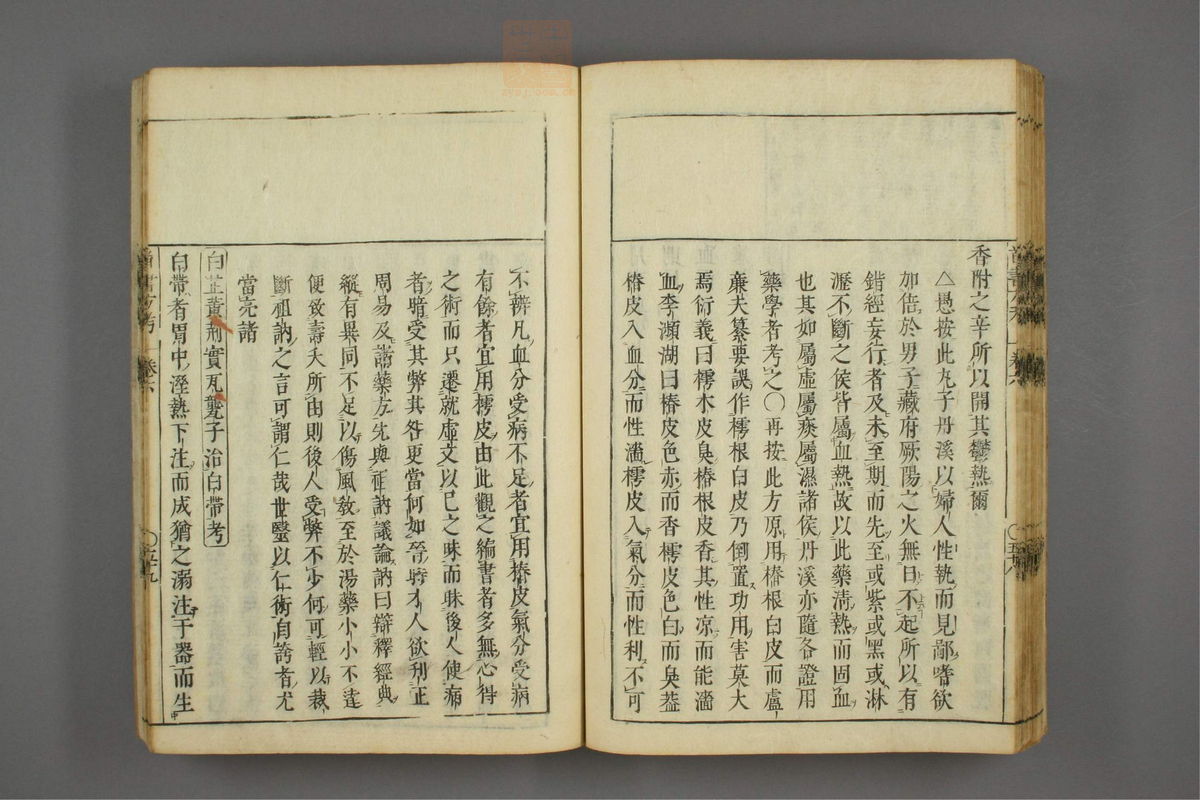 香附之辛所以開其鬱熱爾
△愚按此丸子丹溪以婦人性執而見鄙嗜欲
加倍於男子藏府厥陽之火無日不起所以有
錯經妄行者及未至期而先至或紫或黑或淋
瀝不斷之候皆屬血熱故以此藥淸熱而固血
也其如屬虛屬痰屬濕諸侯丹溪亦隨各證用
藥學者考之〇再按此方原用椿根白皮而盧
廉夫纂要誤作樗根白皮乃倒置功用害莫大
焉衍義曰樗木皮臭椿根皮香其性凉而能濇
血李瀕湖曰椿皮色赤而香樗皮色白而臭葢
椿皮入血分而性濇樗皮入氣分而性利不可
不辨凡血分受病不足者宜用椿皮氣分受病
有餘者宜用樗皮由此觀之編書者多無心得
之術而只遷就虛文以已之昧而昧後人使病
者暗受其弊其咎更當何如等時才人欲刋正
周易及諸藥方先與祖訥議論訥曰辯釋經典
縱有異同不足以傷風敎至於湯藥小小不達
便致壽夭所由則後人受弊不少何可輕以裁
斷祖訥之言可謂仁哉世醫以仁術自誇者尤
當亮諸
白芷黃荊實瓦甃子治白帶考
白帶者胃中溼熱下注而成猶之溺注于器而生
卷六
五十八
卷六
五十九